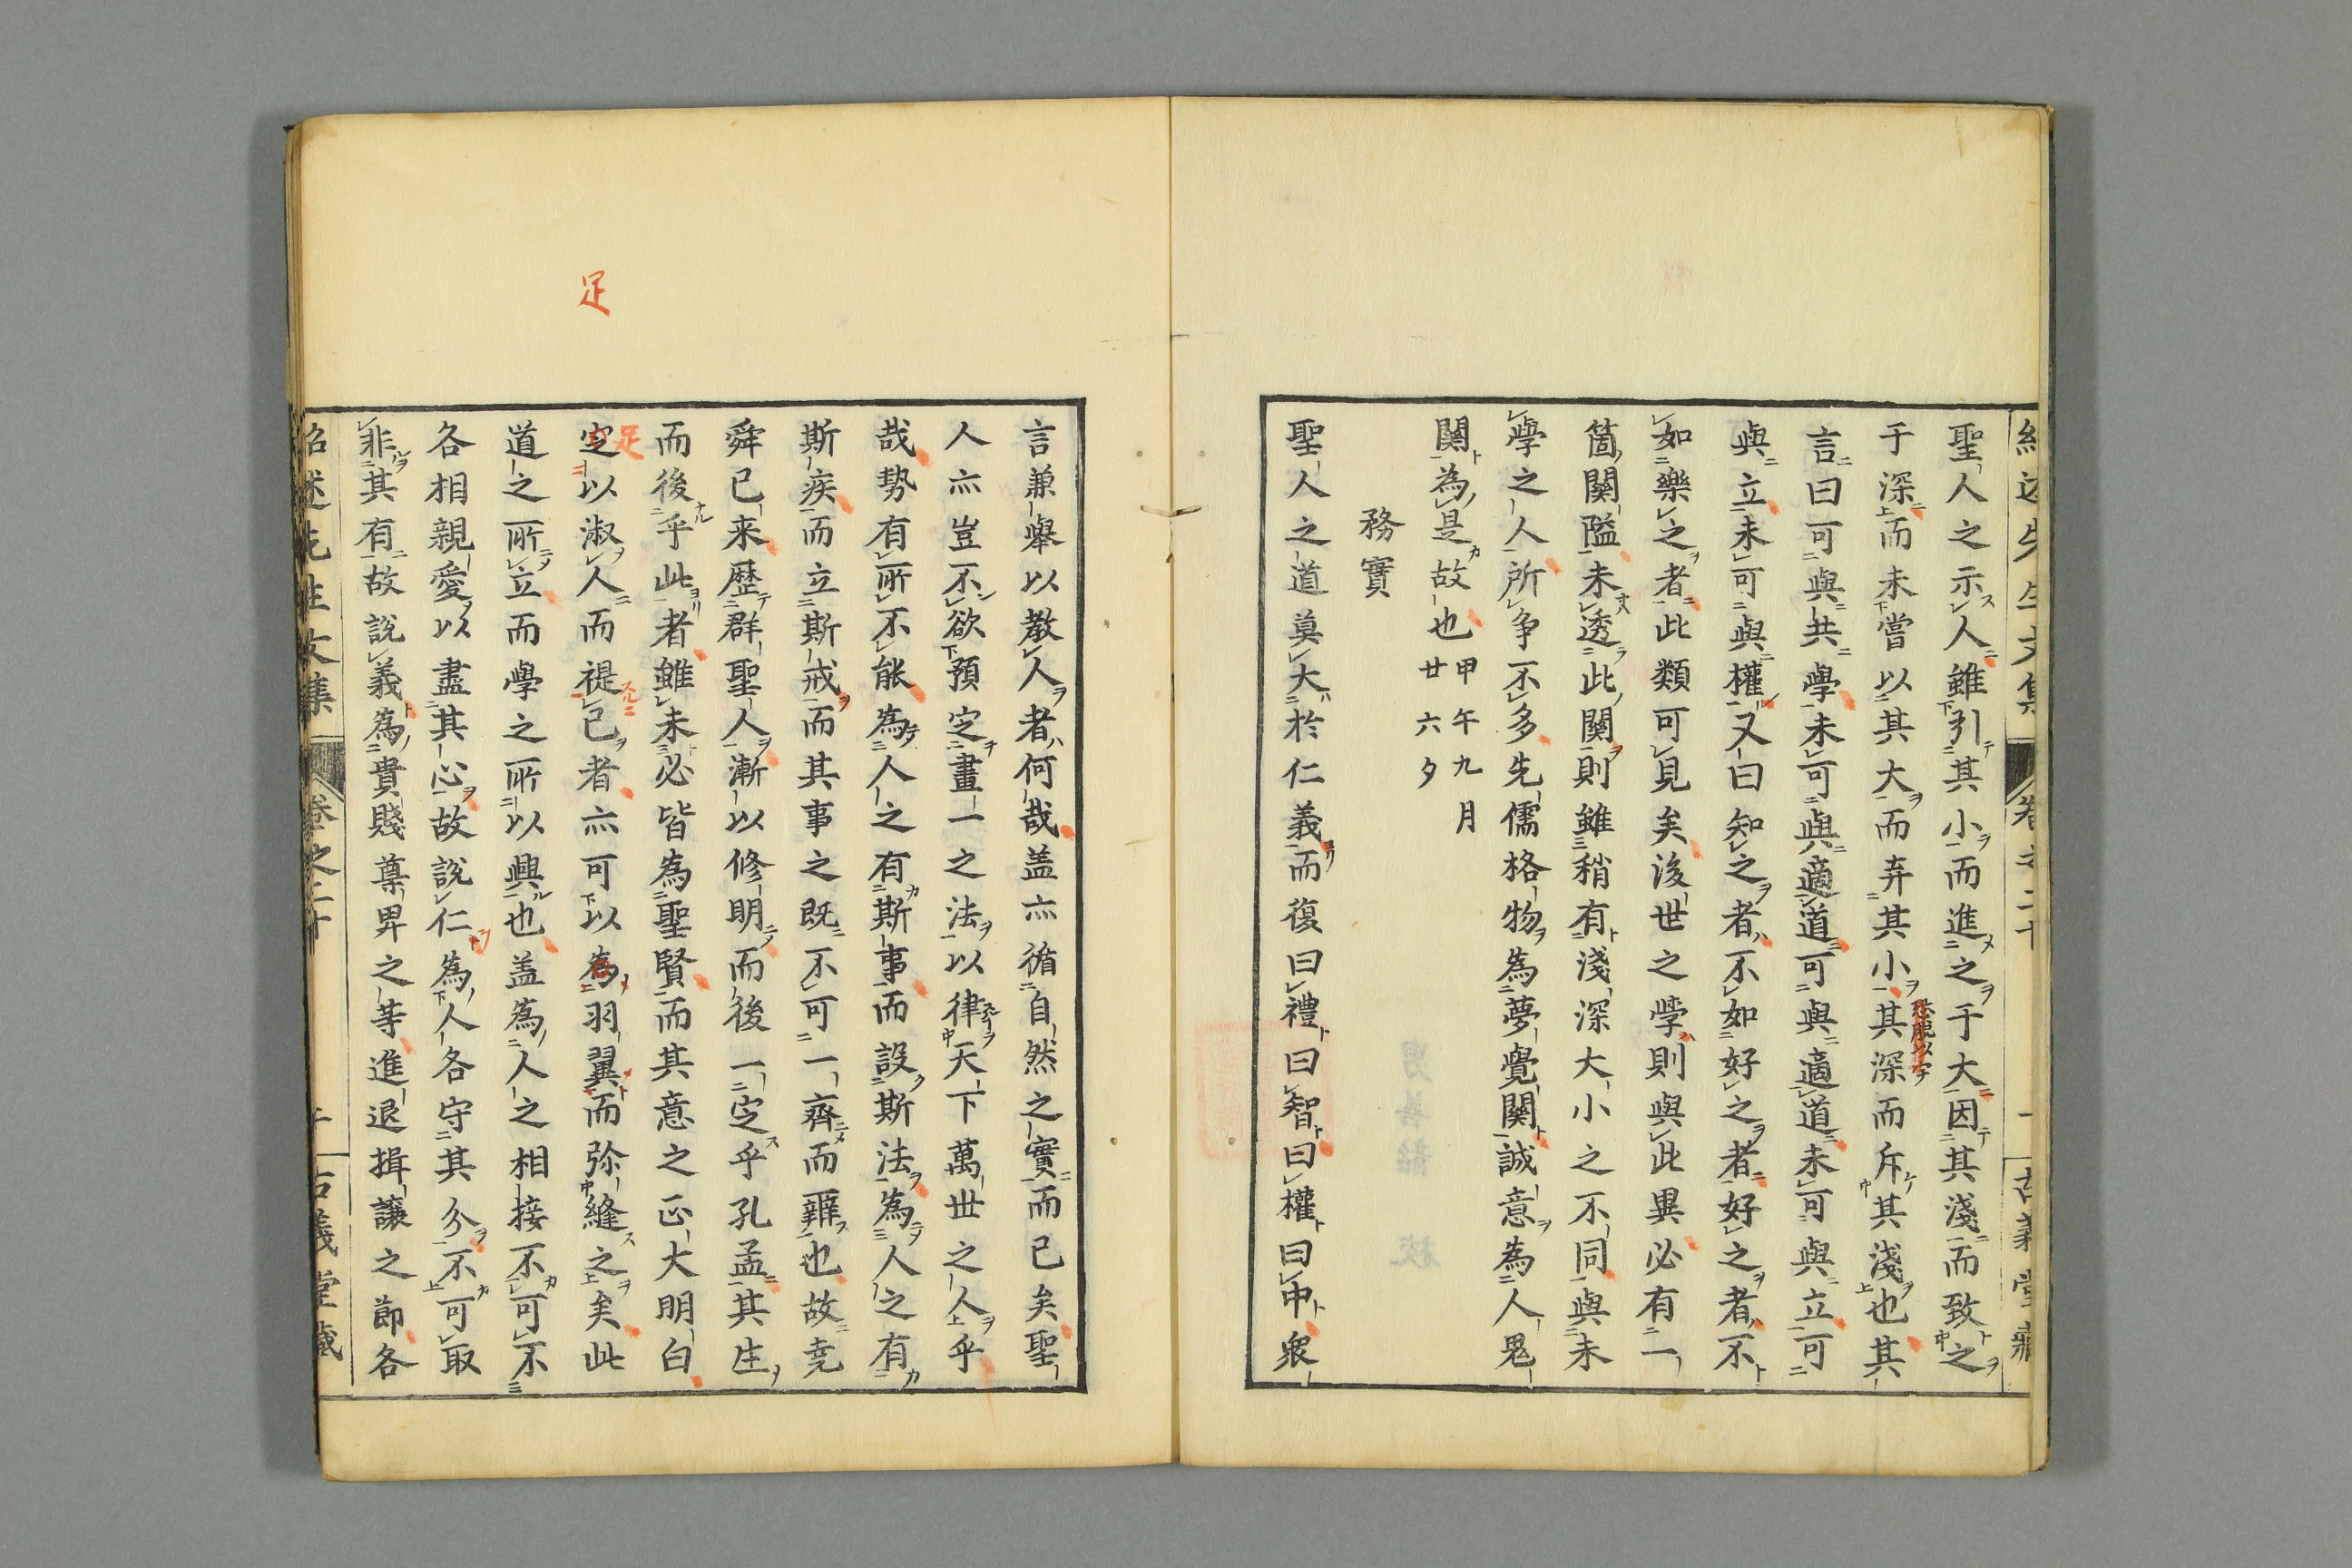 聖人之示人雖引其小而進之于大因其淺而致之
于深而未嘗以其大而弃其小其深而斥其淺也其
恐脫以字
言曰可與共學未可與適道可與適道未可與立可
與立未可與權又曰知之者不如好之者好之者不
如樂之者此類可見矣後世之學則與此異必有一
箇關隘未透此關則雖稍有淺深大小之不同與未
學之人所爭不多先儒格物為夢覺關誠意為人鬼
關為是故也
甲午九月
廿六夕
務實
聖人之道莫大於仁義而復曰禮曰智曰權曰中衆
足
言兼舉以教人者何哉盖亦循自然之實而已矣聖
人亦豈不欲預定畫一之法以律天下萬世之人乎
哉勢有所不能為人之有斯事而設斯法為人之有
斯疾而立斯戒而其事之既不可一齊而雜也故堯
舜已来歷群聖人漸以修明而後一定乎孔孟其生
而後乎此者雖未必皆為聖賢而其意之正大明白
足
定以淑人而禔已者亦可以為羽翼而弥縫之矣此
道之所立而學之所以興也盖為人之相接不可不
各相親愛以盡其心故說仁為人各守其分不可取
非其有故說義為貴賤尊卑之等進退揖讓之節各
紹述先生文集 卷之二十 古義堂藏